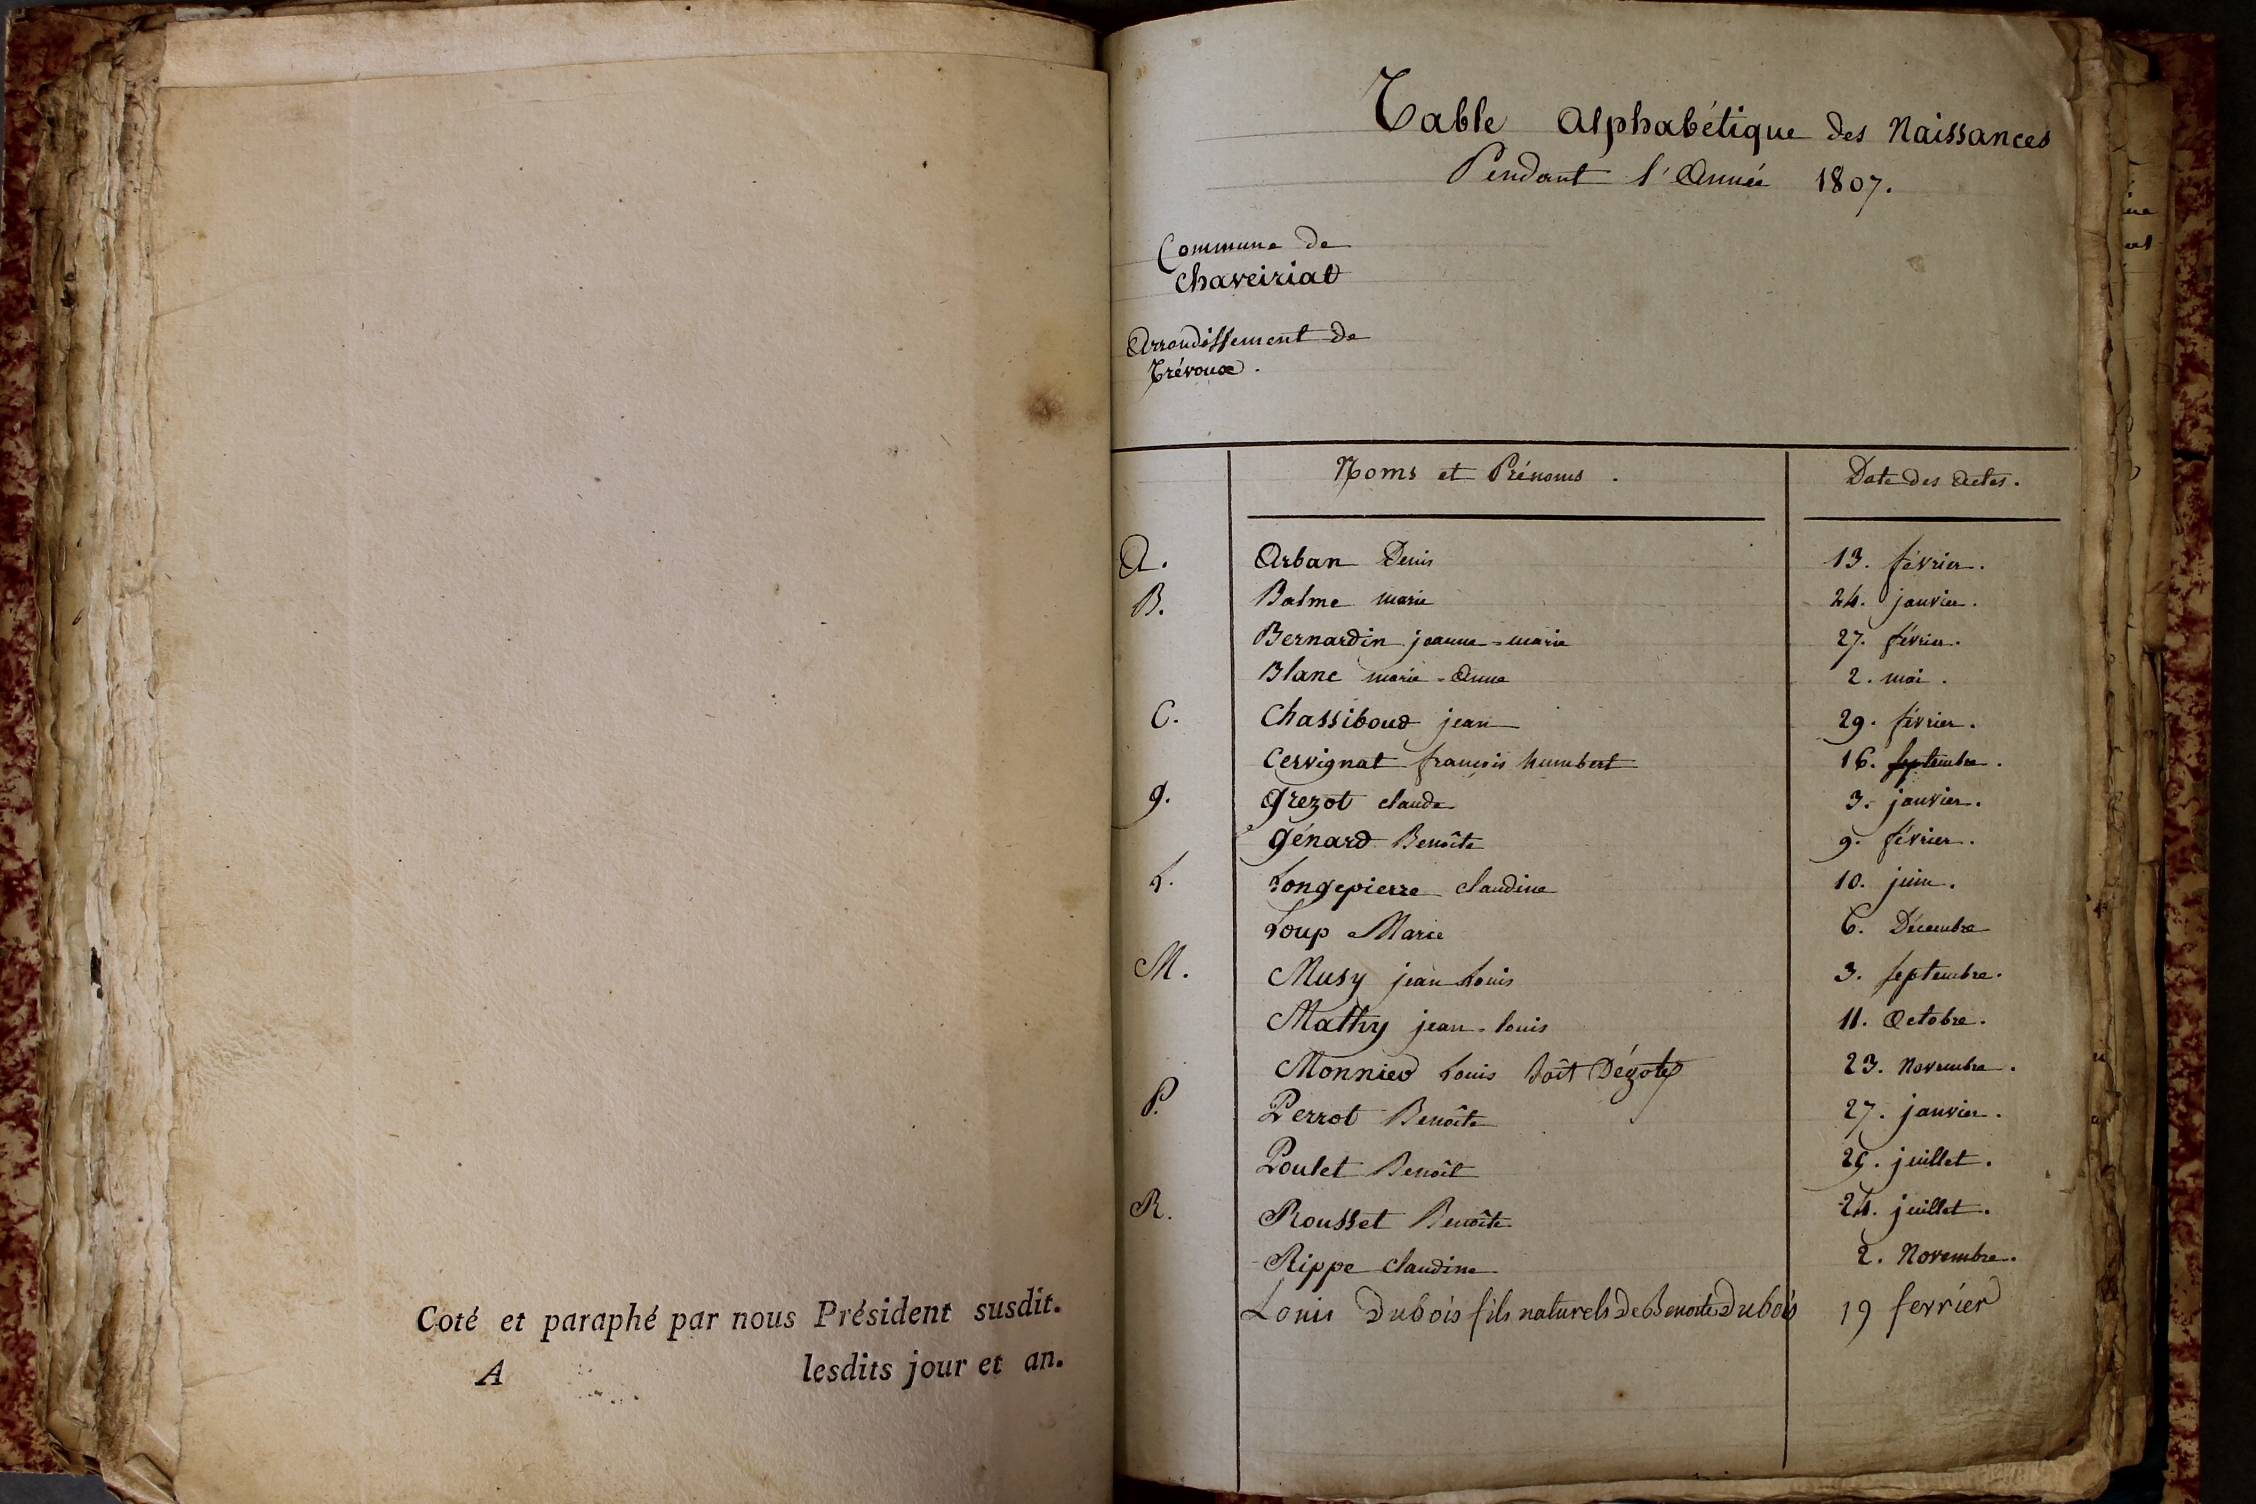 Coté et paraphé par nous Président susdit.
A lesdits jour et an.
Table Alphabétique des Naissances
Pendant l'Année 1807.
Commune de
Chaveiriat
Arrondissement de
Trévoux.
Noms et Prénoms. Date des Actes.
A. Arban Denis 13. février.
B. Balme marie 24. janvier.
Bernardin jeanne-marie 27. février.
Blanc marie-Anne 2. mai.
C. Chassiboud jean 29. février.
Cervignat françois humbert 16. septembre.
g. grezot claude 3. janvier.
génard Benoîte 9. février.
L. Longepierre claudine 10. juin.
Loup Marie 6. Décembre
M. Musy jean Louis 3. septembre.
Mathy jean-louis 11. Octobre.
Monnier Louis 23. Novembre.
P. Perrot Benoîte 27. janvier.
Poulet Benoît 29. juillet.
R. Rousset Benoîte 24. juillet.
Rippe claudine 2. Novembre.
Louis Dubois fils naturels de Benoite Dubois 19 fevrier